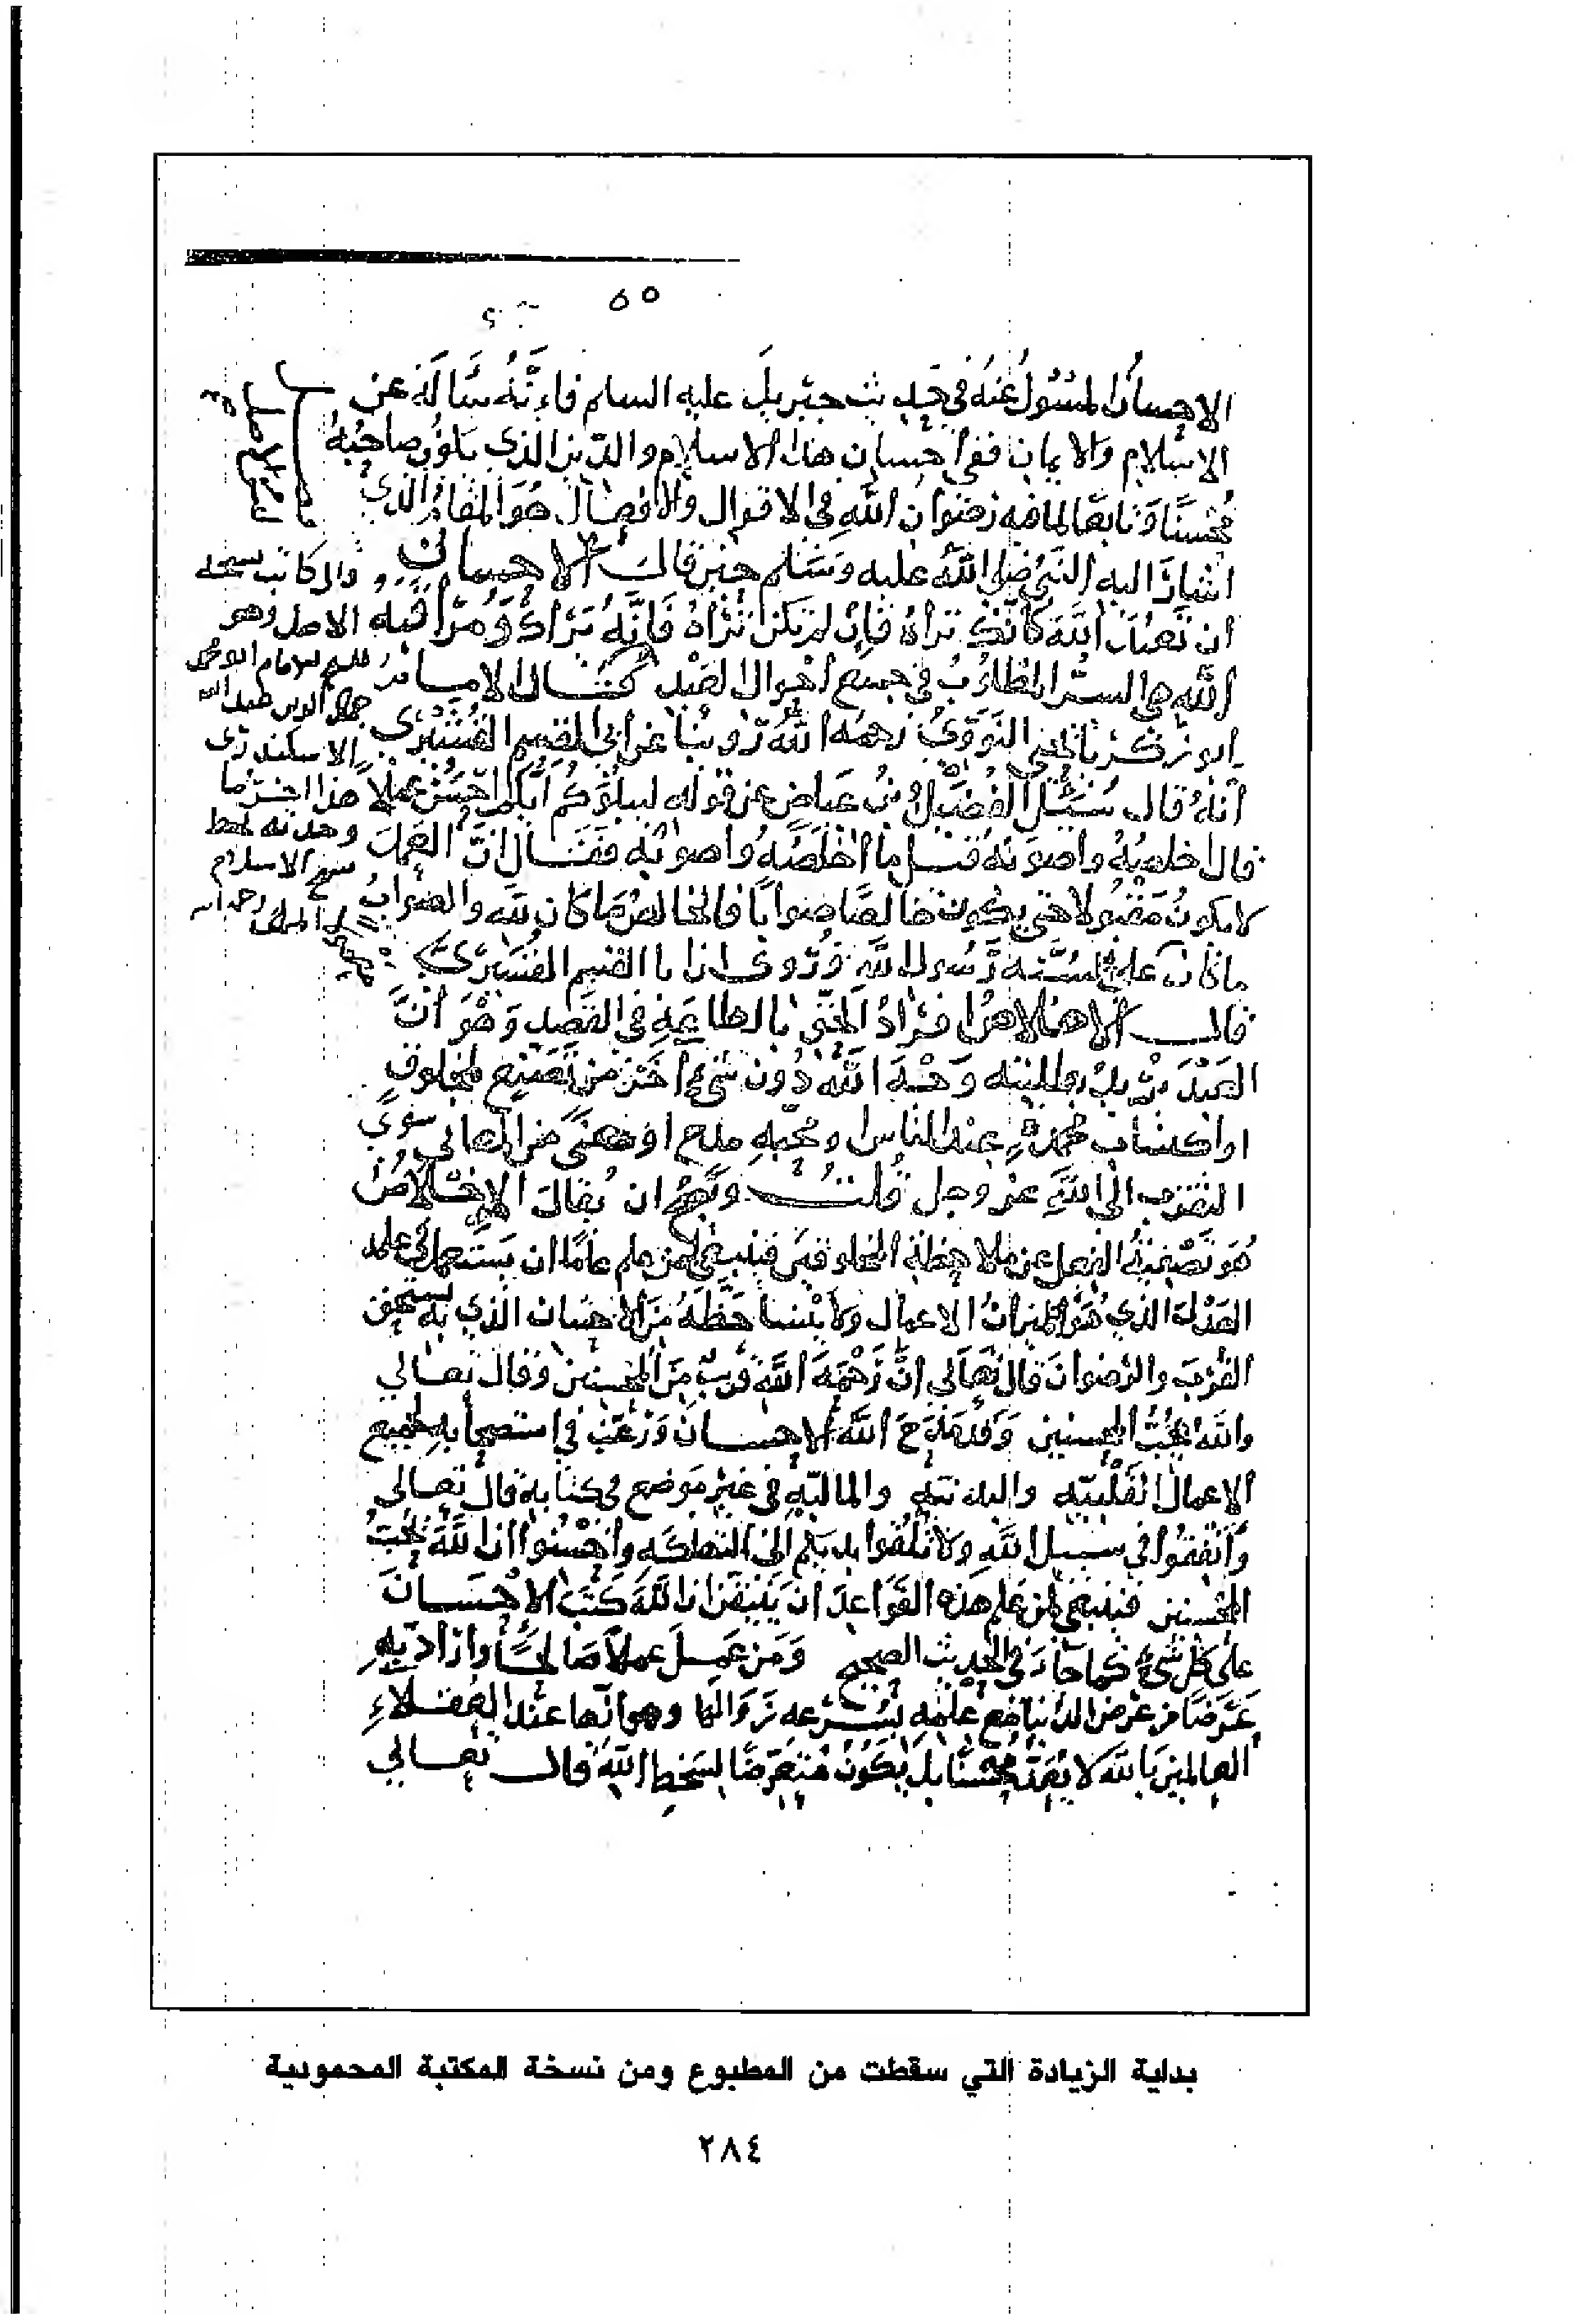 ٥٥
الاحسان المسئول عنه في حديث جبريل عليه السلم فاءنه سأله عن
الاسلام والايمان ففي احسان هذا الاسلام والدين الذي يكون صاحبه
محسنا وتابعا لما فيه رضوان الله في الاقوال والافعال هو المقام الذي
اشار اليه النبي صلى الله عليه وسلم حين قال الاحسان
ان تعبد الله كانك تراه فان لم تكن تراه فانه يراك ومراقبه
الله هي السر المطلوب في جميع احوال العبد كتاب الامام
ابو زكريا يحيى النووي رحمه الله روينا عن ابي القسم القشيري
انه قال سئل الفضيل بن عياض عن قوله ليبلوكم ايكم احسن عملا
قال اخلصه واصوبه قيل ما اخلصه واصوبه فقال ان العمل
لا يكون مقبولا حتى يكون خالصا صوابا فالخالص ما كان لله والصواب
ما كان على سنة رسول الله وروى ابا القسم القشيري
قال الاخلاص افراد الحق بالطاعة في القصد وهو ان
العبد يريد بطاعته وجه الله دون شيء اخر من تصنع لمخلوق
او اكتساب محمدة عند الناس او محبه مدح او معنى من المعاني سوى
التقرب الى الله عز وجل قلت ويصح ان يقال الاخلاص
هو تصفية الفعل عن ملاحظة المخلوقين فينبغي لمن علم علما ان يستعمل في علمه
العدل الذي هو ميزان الاعمال ولا ينسا حظه من الاحسان الذي به يستحق
القرب والرضوان قال تعالى ان رحمة الله قريب من المحسنين وقال تعالي
والله يحب المحسنين وقد مدح الله الاحسان ورغب في استصحابه لجميع
الاعمال القلبيه والبدنيه والماليه في غير موضع في كتابه قال تعالى
وانفقوا في سبيل الله ولا تلقوا بايديكم الى التهلكه واحسنوا ان الله يحب
المحسنين فينبغي لمن علم هذه القواعد ان يتيقن ان الله كتب الاحسان
على كل شيء كما جاء في الحديث الصحيح ومن عمل عملا صالحا واراد به
عرضا من عرض الدنيا مع علمه بسرعه زوالها وهوانها عند العقلاء
العالمين بالله لا يعد محسنا بل يكون متعرضا لسخط الله قال تعالي
والكاتب نسخه
الاصل وهو
الامام ابو محمد
جمال الدين عبد الله
الاسكندري
هذا اخر ما
وجدته بخط
شيخ الاسلام
رحمه الله
بداية الزيادة التي سقطت من المطبوع ومن نسخة المكتبة المحمودية
٢٨٤